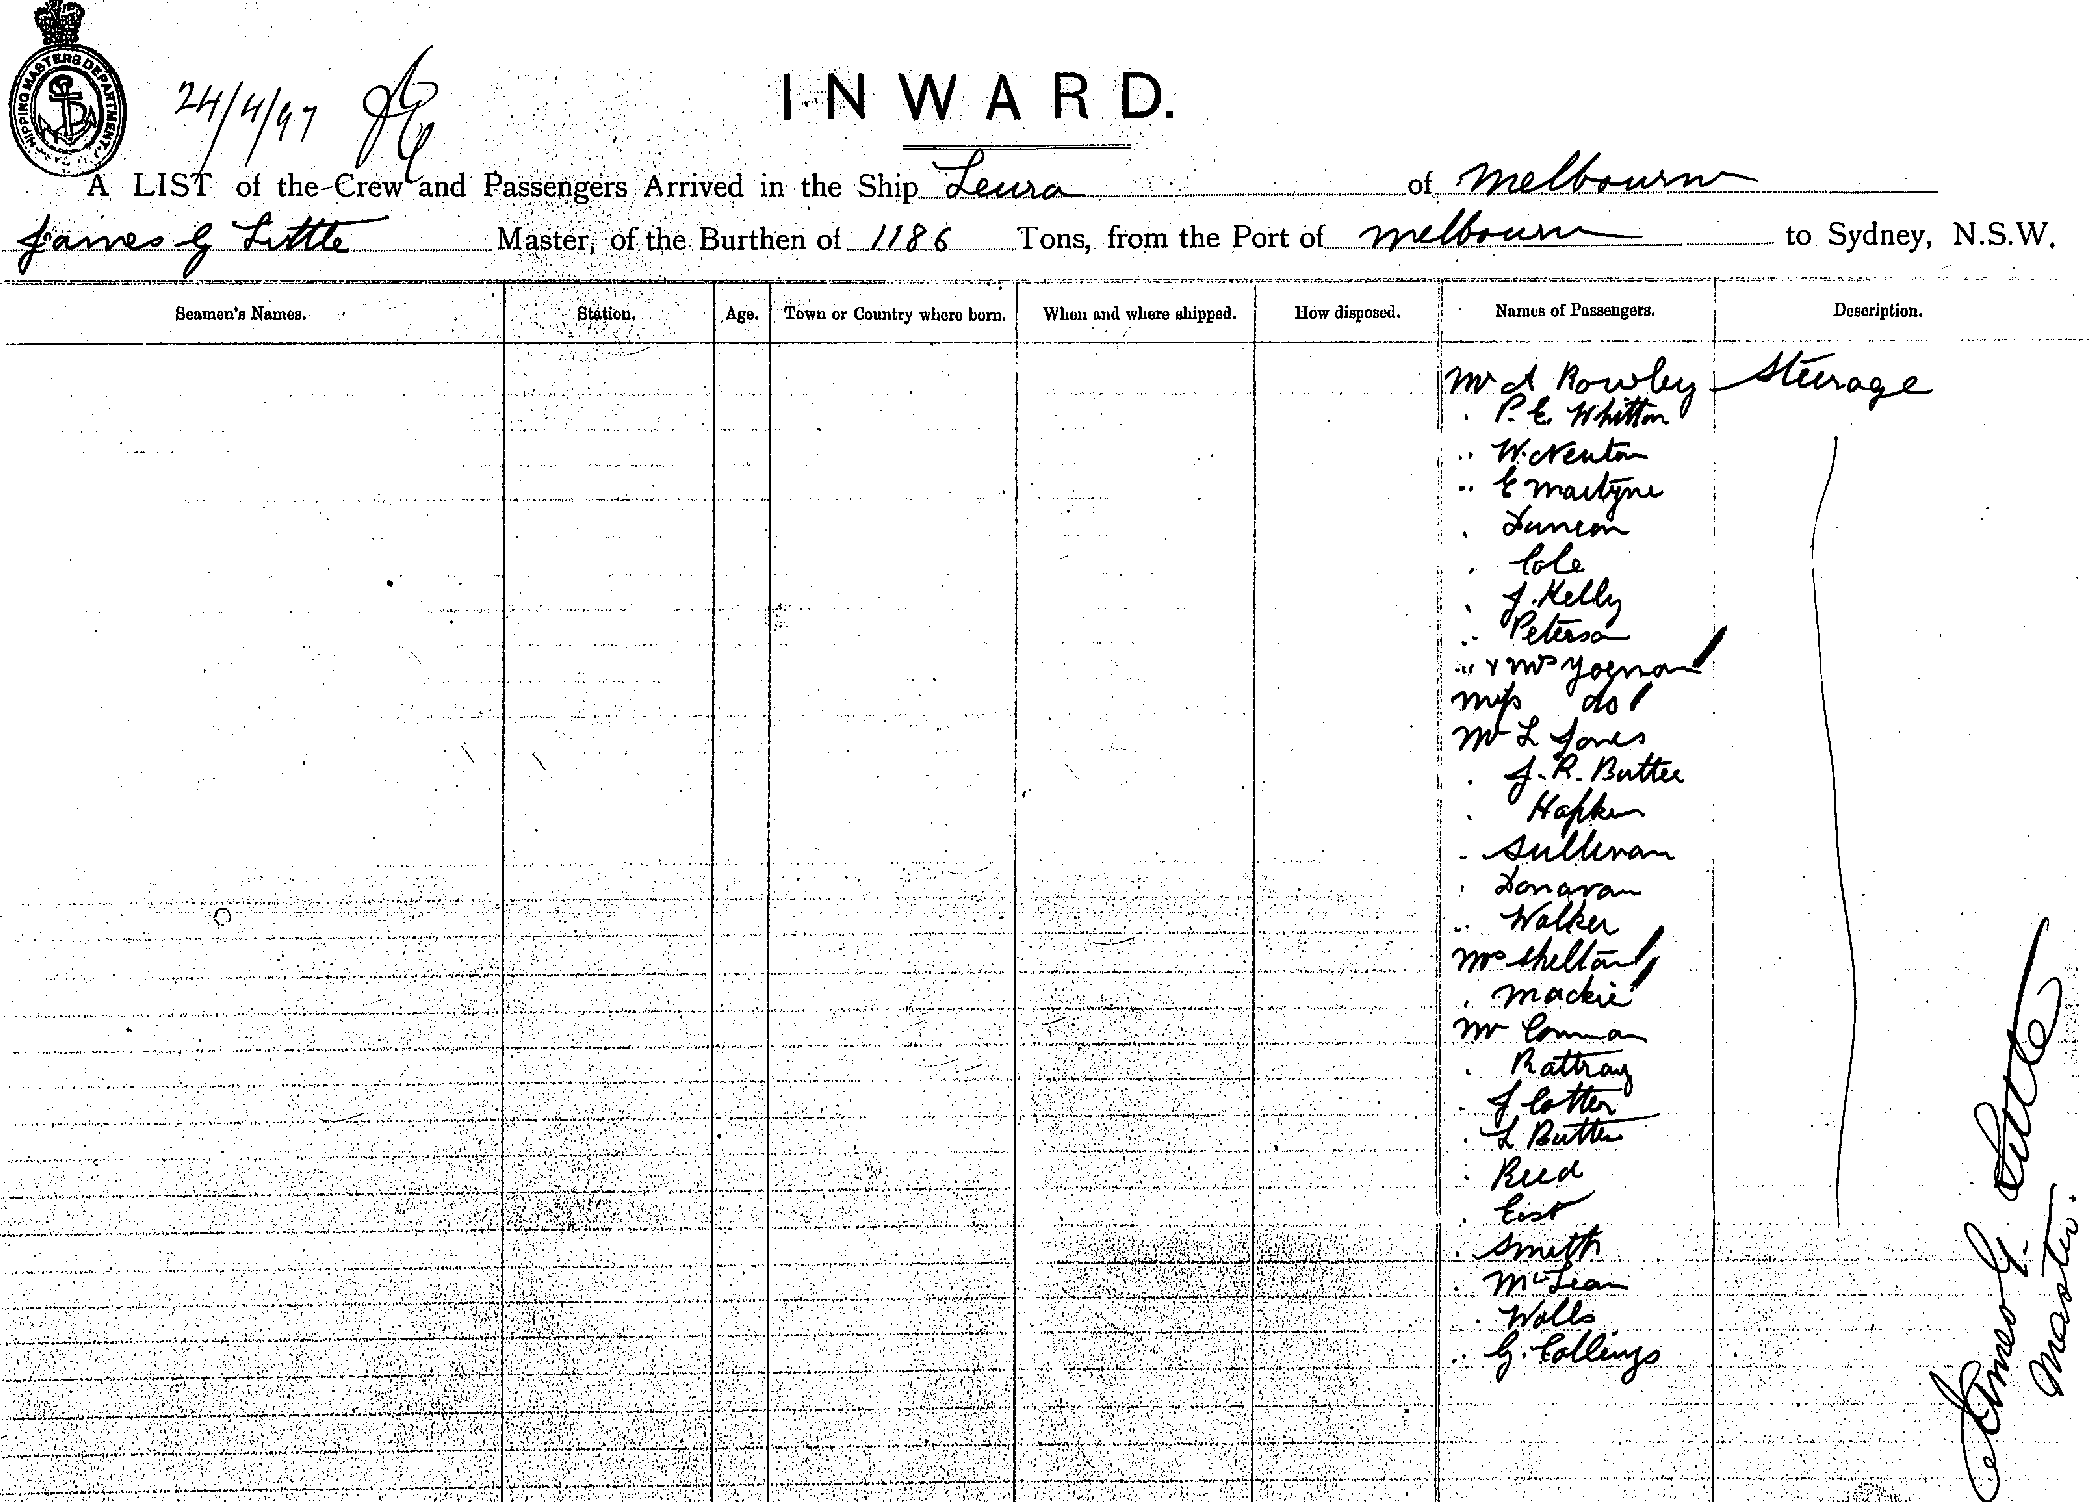 SHIPPING MASTERS DEPARTMENT
24/4/97
INWARD.
A LIST of the Crew and Passengers Arrived in the Ship Leura of Melbourne
James G Little Master, of the Burthen of 1186 Tons, from the Port of Melbourne to Sydney, N.S.W.
Seamen's Names. Station. Age. Town or Country where born. When and where shipped. How disposed. Names of Passengers. Description.
Mr A Rowley Steerage
. P. E. Whitton
.. W. Newton
.. E Martyne
. Duncan
. Cole
. J. Kelly
.. Peterson
.. & Mrs Yoeman
Miss do
Mr L Jones
. J. R. Butler
. Hapken
. Sullivan
. Donavan
.. Walker
Mrs Shelton
. Mackie
Mr Connan
. Rattray
. J Cotter
. L Butler
. Reed
. East
. Smith
. McLean
. Walls
.. G. Collings
James G. Little
Master.